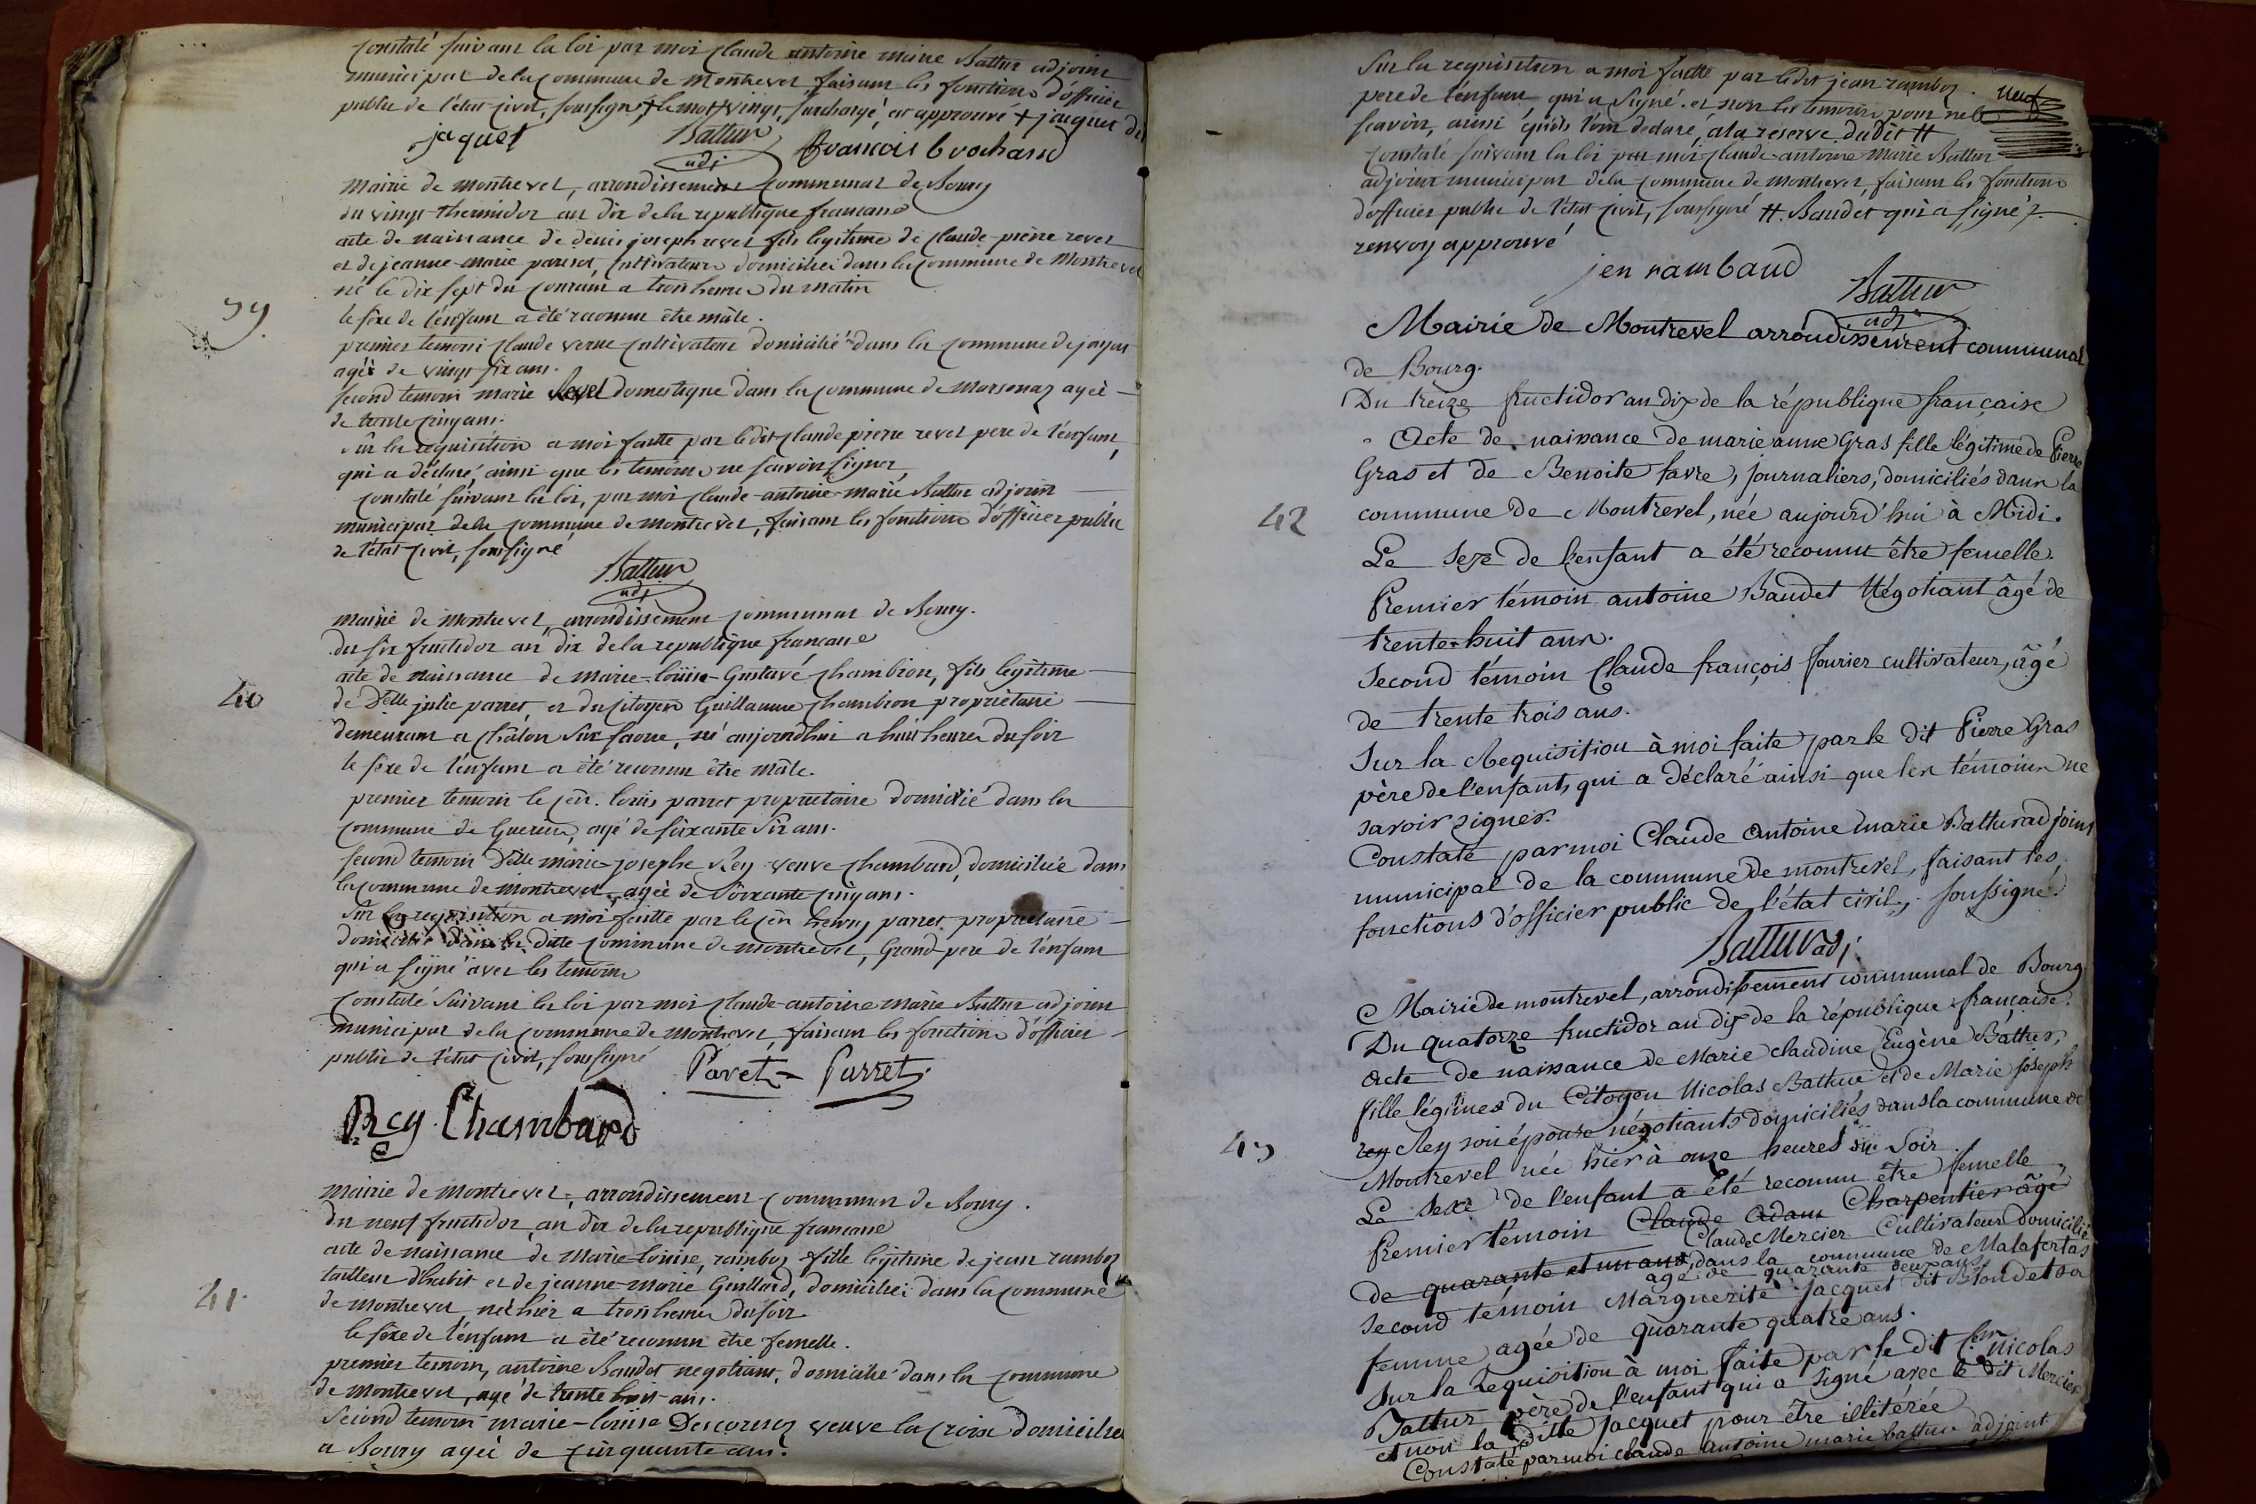 constaté suivant la loi par moi Claude antoine marie Battur adjoint
municipal de la commune de Montrevel, faisant les fonctions d'officier
public de l'état civil, soussigné, + le mot vingt, surchargé, est approuvé + jaquet dit
jaquet Battur adj: François brochand
Mairie de montrevel, arrondissement communal de Bourg
du vingt thermidor an dix de la republique francaise
acte de naissance de denis joseph revel fils legitime de Claude pierre revel
et de jeanne-marie pariset, cultivateurs domiciliés dans la commune de Montrevel
né le dix sept du courant a trois heures du matin
39.
le sexe de l'enfant a été reconnu être mâle.
premier temoin Claude verne cultivateur domicilié dans la commune de jayat
agé de vingt six ans.
second temoin marie Revel domestique dans la commune de Marsonaz agée
de trente cinq ans.
sur la requisition a moi faitte par ledit Claude pierre revel pere de l'enfant,
qui a déclaré, ainsi que les temoins ne scavoir signer,
constaté suivant la loi, par moi Claude-antoine-marie Battur adjoint
municipal de la commune de montrevel, faisant les fonctions d'officier public
de l'état civil, soussigné
Battur adj
mairie de montrevel, arrondissement communal de Bourg.
du six fructidor an dix de la republique francaise
acte de naissance de marie-loüise-Gustave Chambion, fils legitime
40
de Delle julie parret et du citoyen Guillaume Chambion proprietaire
demeurant a Châlon sur saone, né aujourdhui a huit heures du soir
le sexe de l'enfant a été reconnu être mâle.
premier temoin le cen. louis parret proprietaire domicilié dans la
commune de Guereins, agé de soixante six ans.
second temoin Delle marie-josephe Rey veuve Chambard, domiciliée dans
la commune de montrevel, agée de soixante cinq ans.
sur la requisition a moi faitte par le cen henry parret proprietaire
domicilié dans la ditte commune de montrevel, Grand pere de l'enfant
qui a signé avec les temoins
Constaté suivant la loi par moi Claude-antoine marie Battur adjoint
municipal de la commune de Montrevel, faisant les fonctions d'officier
public de l'état civil, soussigné Paret - Parret.
Rey Chambard
mairie de montrevel, arrondissement communal de Bourg.
du neuf fructidor an dix de la republique francaise
acte de naissance de Marie louise, ramboz fille legitime de jean ramboz
41.
tailleur d'habit et de jeanne-marie Guillard, domiciliés dans la commune
de montrevel née hier a trois heures du soir
le sexe de l'enfant a été reconnu être femelle.
premier temoin, antoine Baudet negotiant, domicilié dans la commune
de montrevel, agé de trente huit ans.
second temoin marie-loüise Descornoz veuve la Croix domiciliée
a Bourg agée de cinquante ans.
Sur la requisition a moi faitte par ledit jean ramboz
pere de l'enfant, qui a signé. et non les temoins, pour ne le
scavoir, ainsi qu'ils l'ont declaré, a la reserve du dit #
constaté suivant la loi par moi Claude-antoine marie Battur
adjoint municipal de la commune de montrevel, faisant les fonctions
d'officier public de l'état civil, soussigné #. Baudet qui a signé.
renvoy approuvé
jen rambaud
Battur adj
Mairie de Montrevel arrondissement communal
de Bourg.
Du treize fructidor an dix de la république française
Acte de naissance de marie anne Gras fille légitime de Pierre
Gras et de Benoite favre, journaliers, domiciliés dans la
42
commune de Montrevel, née aujourd'hui à Midi.
Le sexe de l'enfant a été reconnu être femelle.
Premier témoin antoine Baudet Négotiant âgé de
trente-huit ans.
Second témoin Claude françois fourier cultivateur, âgé
de trente trois ans.
Sur la Requisition à moi faite par le dit Pierre Gras
père de l'enfant, qui a déclaré ainsi que les témoins ne
savoir signer.
Constaté par moi Claude Antoine marie Battur adjoint
municipal de la commune de montrevel, faisant les
fonctions d'officier public de l'état civil, soussigné.
Battur adj.
Mairie de montrevel, arrondissement communal de Bourg
Du quatorze fructidor an dix de la république française.
Acte de naissance de Marie claudine Eugène Battur,
fille légitime du Citoyen Nicolas Battur et de Marie Joseph
43
rey Rey son épouse négotiants domiciliés dans la commune de
Montrevel née hier à onze heures du soir
Le sexe de l'enfant a été reconnu être femelle
Premier témoin Claude Adam Charpentier âgé
Claude Mercier Cultivateur domicilié
de quarante et un ans, dans la commune de Malafertas
agé de quarante deux ans
Second témoin Marguerite Jacquet dit Blondet sa
femme agée de quarante quatre ans.
Sur la Requisition à moi faite par le dit Cen. Nicolas
Battur père de l'enfant qui a signé avec le dit Mercier
et non la ditte Jacquet pour être illitérée
Constaté par moi claude Antoine marie battur adjoint